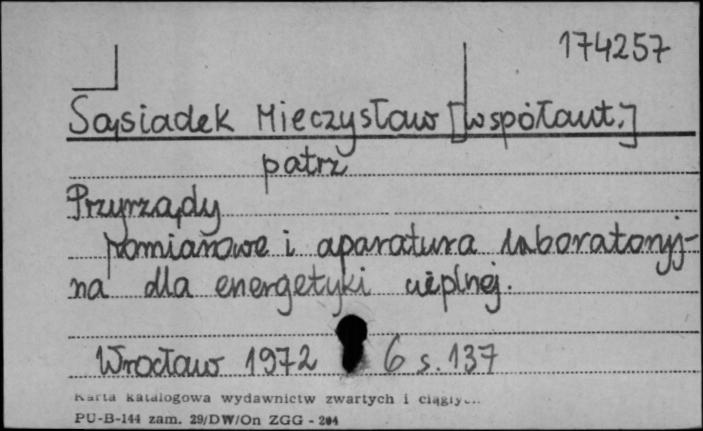 174257
Sąsiadek Mieczysław [współaut.]
patrz
Przyrządy
pomiarowe i aparatura laboratoryj-
na dla energetyki cieplnej.
Wrocław 1972 6 s. 137
Karta katalogowa wydawnictw zwartych i ciągłych
PU-B-144 zam. 29/DW/On ZGG - 204